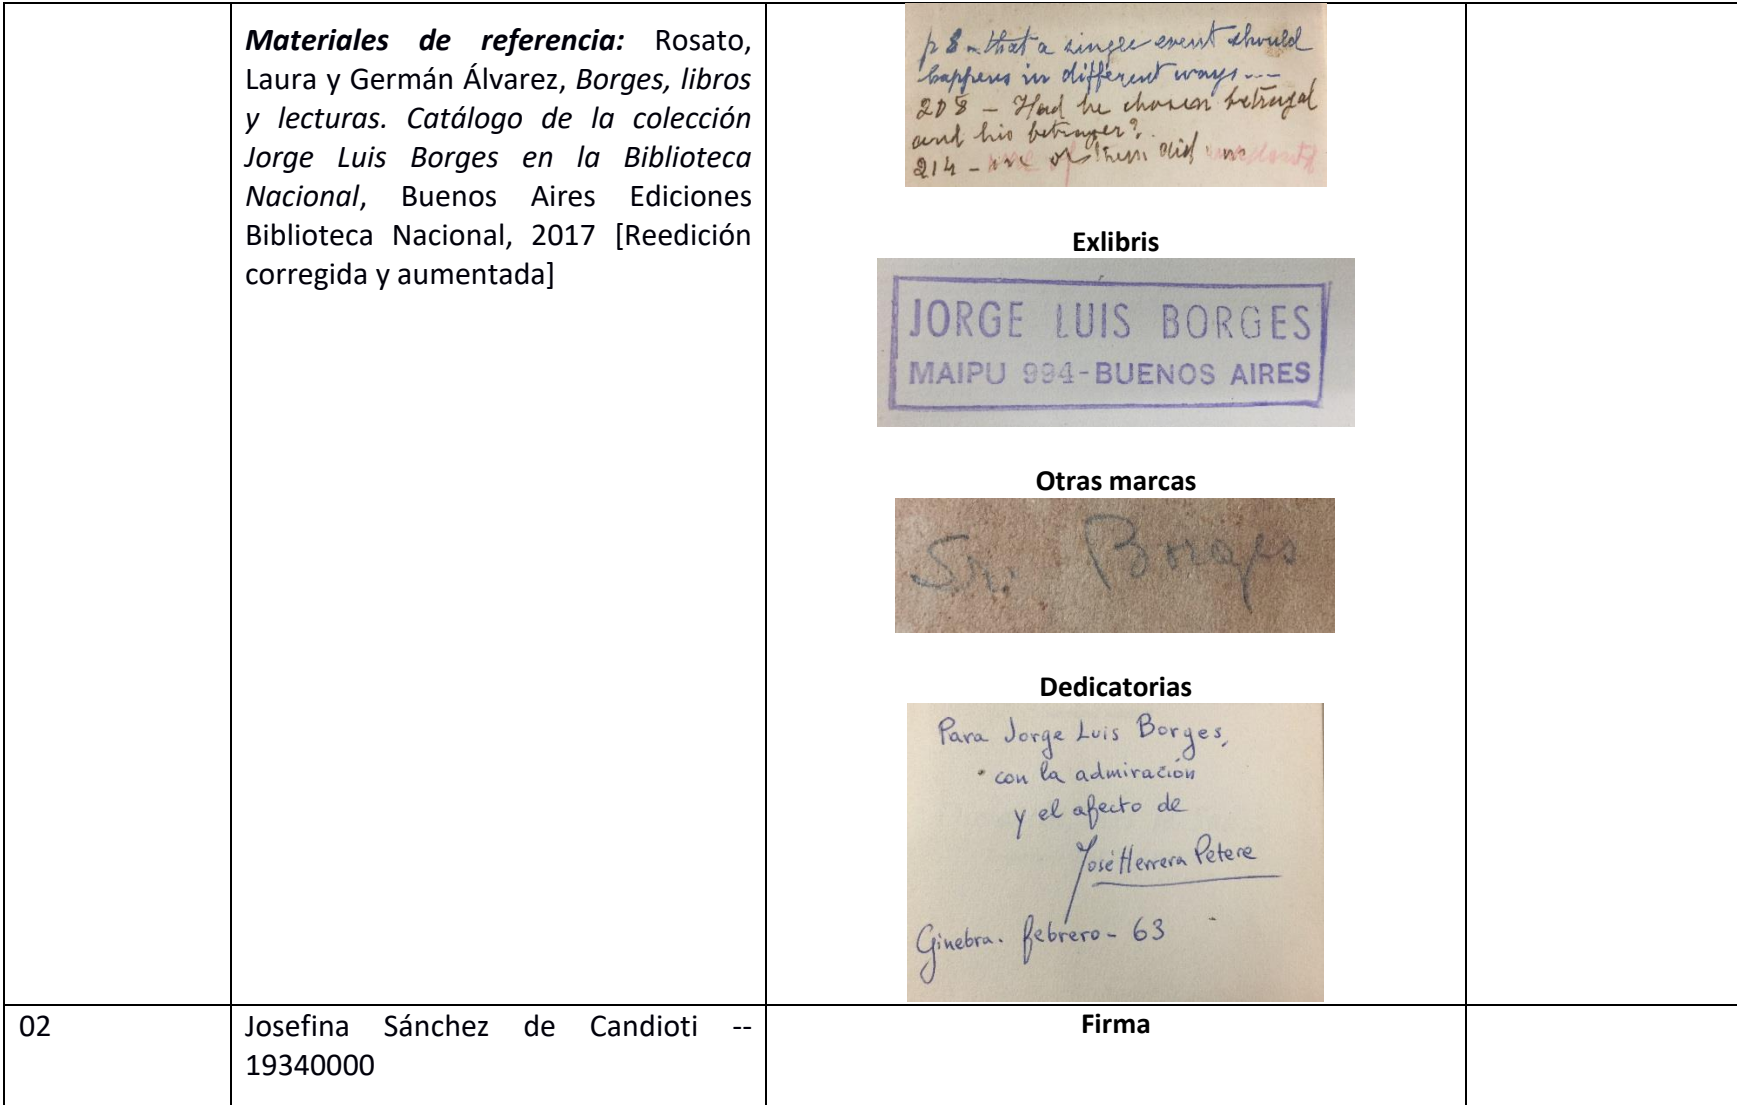 Materiales de referencia: Rosato,
Laura y Germán Álvarez, Borges, libros
y lecturas. Catálogo de la colección
Jorge Luis Borges en la Biblioteca
Nacional, Buenos Aires Ediciones
Biblioteca Nacional, 2017 [Reedición
corregida y aumentada]
p 8 - that a single event should
happens in different ways ---
208 - Had he chosen betrayal
and his betrayer?
214 - one of them did
Exlibris
JORGE LUIS BORGES
MAIPU 994-BUENOS AIRES
Otras marcas
Sr. Borges
Dedicatorias
Para Jorge Luis Borges,
con la admiración
y el afecto de
José Herrera Petere
Ginebra. febrero - 63
02
Josefina Sánchez de Candioti --
19340000
Firma